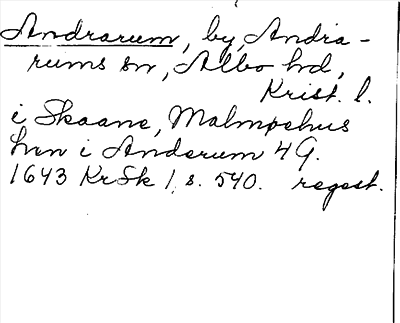 Andrarum, by, Andra-
rums sn, Albo hd,
Krist. l.
i Skaane, Malmøehus
hen i Anderum 4 G.
1643 KrSk 1, s. 540. regest.